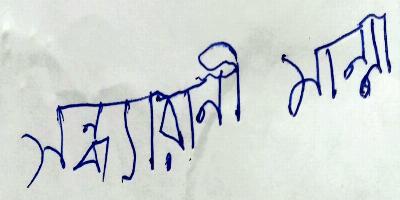 সন্ধ্যারানী মান্না